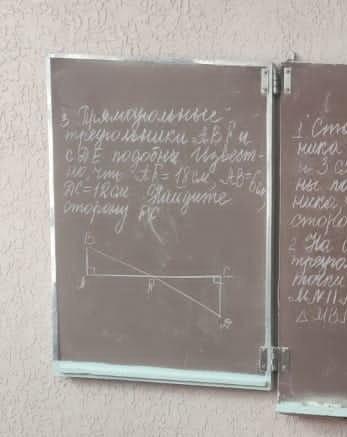 3. Прямоугольные
треугольники ABF и
CDE подобны Извест-
но, что AF=18см, AB=6см,
DC=12см Найдите
сторону FC
B
A
F
C
D
1. Ста
ника
и 3 с
ны по
ника
сторо
2. На с
треугол
точки
M N ||